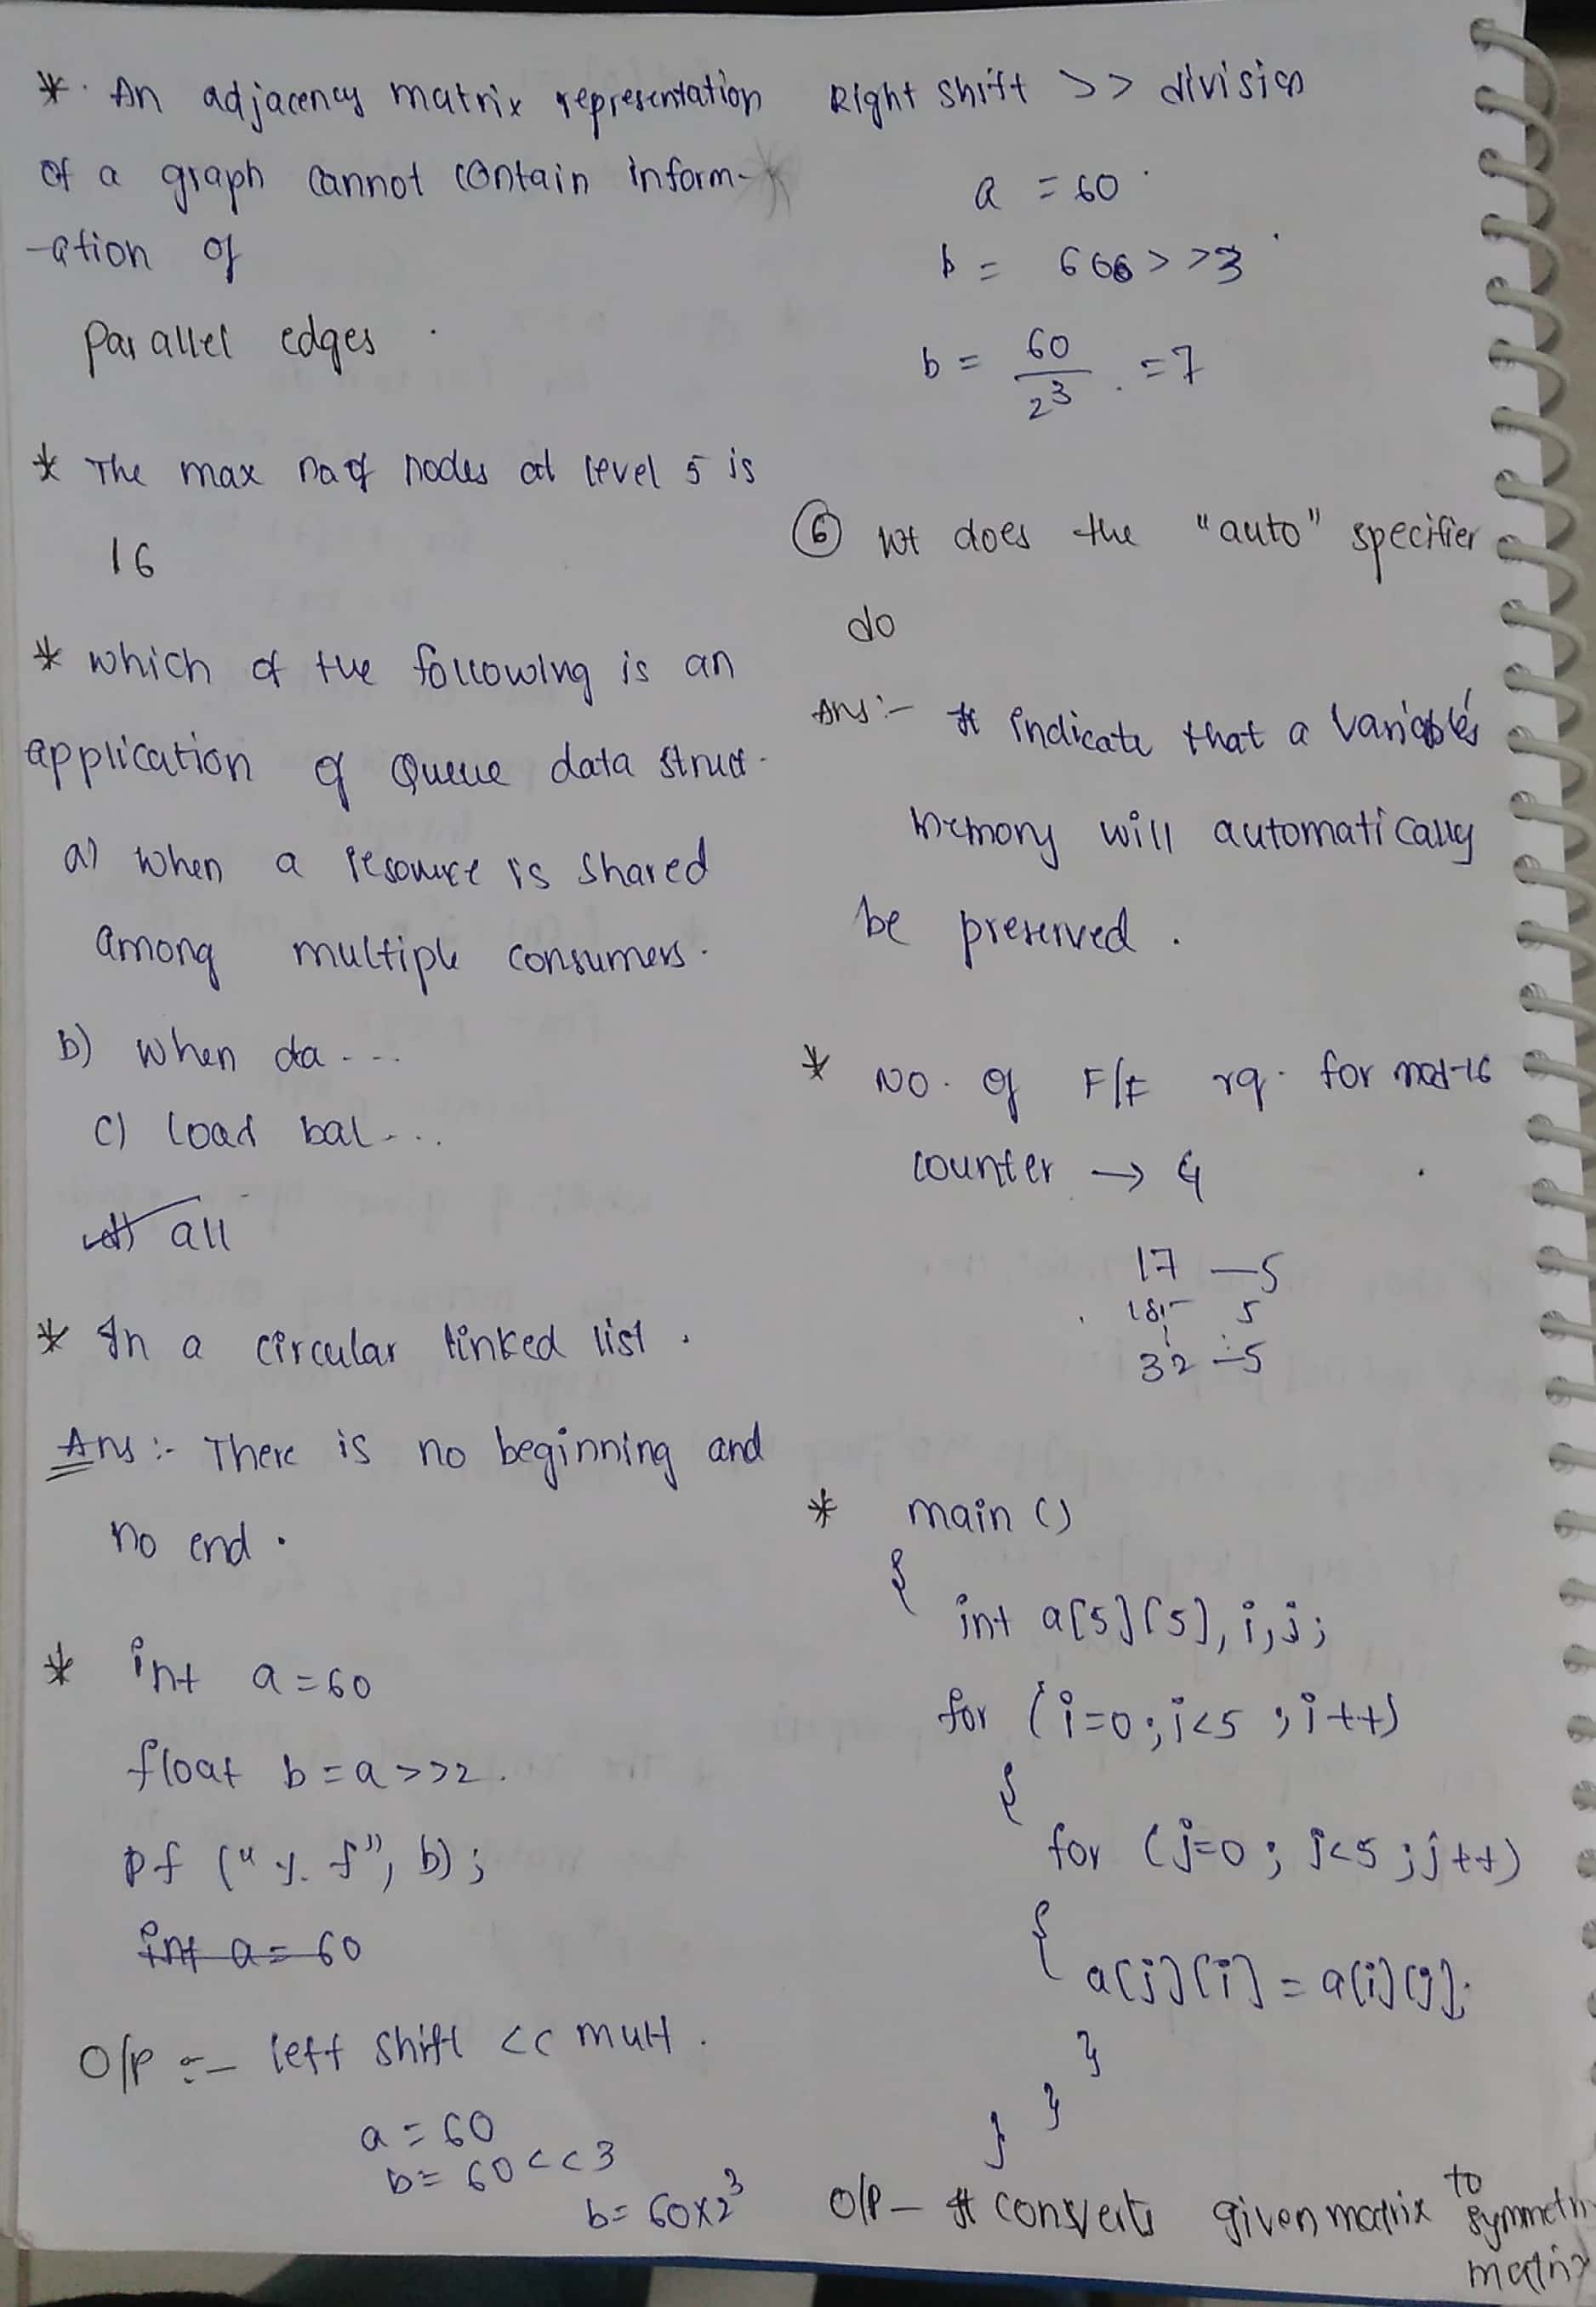 * An adjacency matrix representation
of a graph cannot contain inform-
-ation of
Parallel edges.
* The max no of nodes at level 5 is
16
* which of the following is an
application of Queue data struct.
a) when a resource is shared
among multiple consumers.
b) when da...
c) load bal...
d) all
* In a circular linked list.
Ans :- There is no beginning and
no end.
* int a=60
float b=a>>2.
pf ("%f", b);
int a=60
O/P :- left shift << mult.
a=60
b= 60<<3
b= 60x2³
Right shift >> division
a = 60
b = 60>>3
b = 60/2³ = 7
⑥ wt does the "auto" specifier
do
Ans :- It indicate that a variable's
memory will automatically
be preserved.
* No. of F/F rq. for mod-16
counter → 4
17 — 5
18 - 5
32 - 5
* main ()
{
int a[5][5], i,j;
for (i=0; i<5; i++)
{
for (j=0; j<5; j++)
{
a[j][i] = a[i][j];
}
}
}
O/P - It converts given matrix to
symmetri
matrix